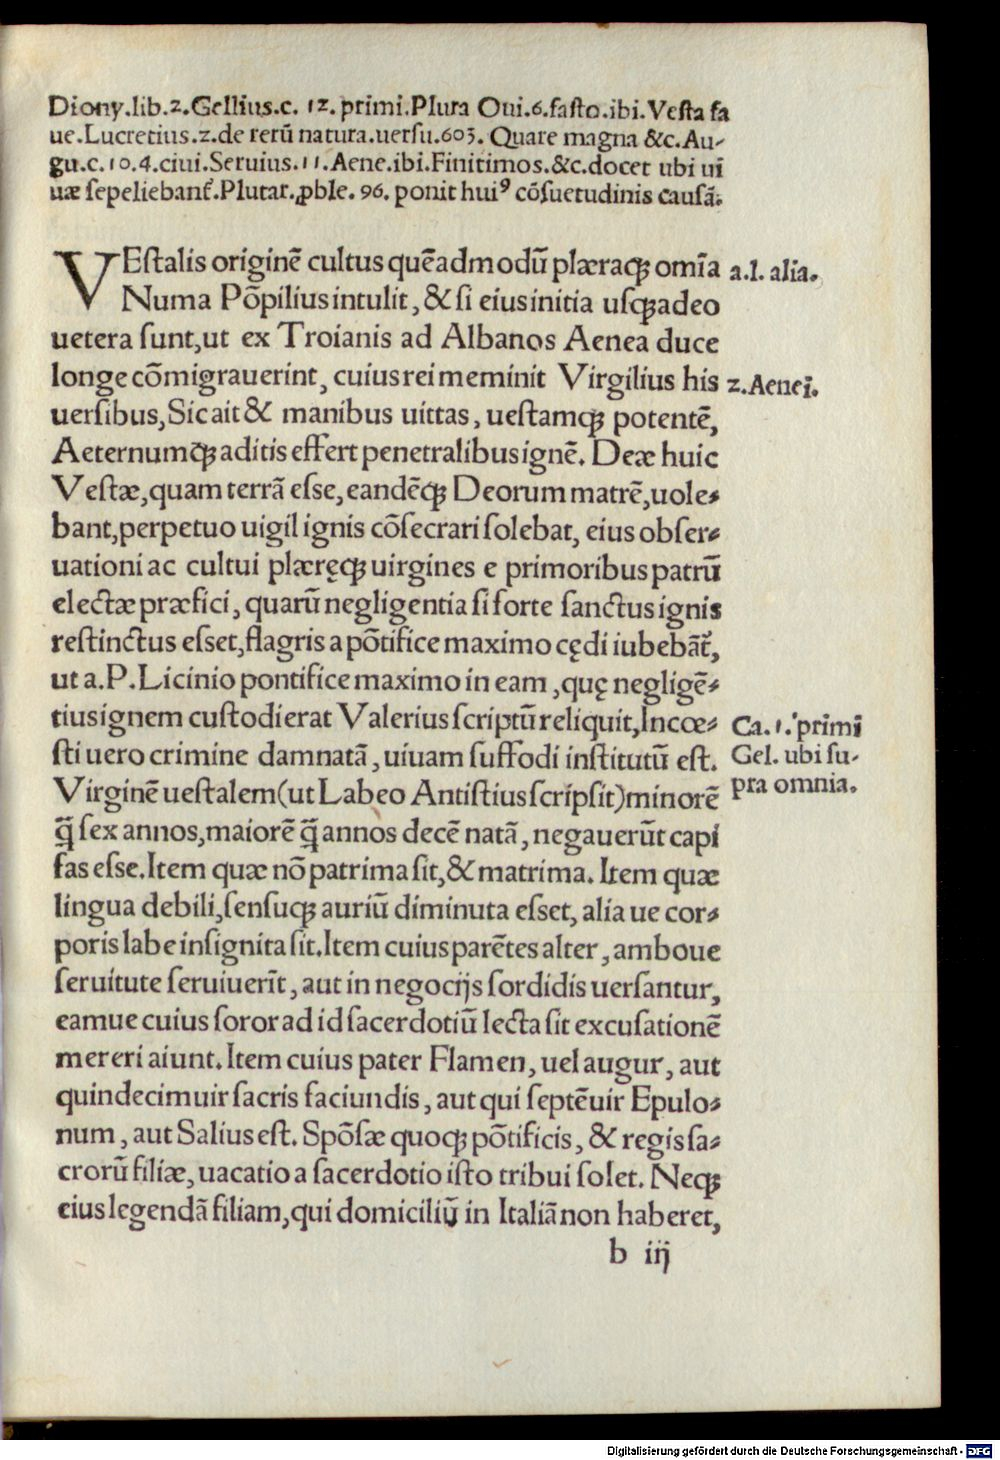 Diony.lib.2.Gellius.c. 12. primi.Plura Oui.6.fasto.ibi.Vesta fa
ue.Lucretius.2.de rerũ natura.uersu.603. Quare magna &c.Au-
gu.c.10.4.ciui.Seruius.11.Aene.ibi.Finitimos.&c.docet ubi ui
uæ sepeliebant᷑.Plutar.ꝓble. 96. ponit huiꝰ cõsuetudinis causã.
VEstalis originẽ cultus quẽadmodũ plæraqꝫ omĩa a.l. alia.
Numa Põpilius intulit, & si eius initia usqꝫadeo
uetera sunt,ut ex Troianis ad Albanos Aenea duce
longe cõmigrauerint, cuius rei meminit Virgilius his 2.Aenei.
uersibus,Sic ait & manibus uittas, uestamqꝫ potentẽ,
Aeternumqꝫ aditis effert penetralibus ignẽ. Deæ huic
Vestæ,quam terrã esse, eandẽqꝫ Deorum matrẽ,uole-
bant,perpetuo uigil ignis cõsecrari solebat, eius obser-
uationi ac cultui plæręqꝫ uirgines e primoribus patrũ
electæ præfici, quarũ negligentia si forte sanctus ignis
restinctus esset,flagris a põtifice maximo cędi iubebãt᷑,
ut a.P.Licinio pontifice maximo in eam ,quę negligẽ-
tius ignem custodierat Valerius scriptũ reliquit,Incœ- Ca.1. primi
sti uero crimine damnatã, uiuam suffodi institutũ est. Gel. ubi su-
Virginẽ uestalem(ut Labeo Antistius scripsit)minorẽ pra omnia.
q̃ sex annos,maiorẽ q̃ annos decẽ natã, negauerũt capi
fas esse.Item quæ nõ patrima sit,& matrima. Item quæ
lingua debili,sensuqꝫ auriũ diminuta esset, alia ue cor-
poris labe insignita sit.Item cuius parẽtes alter, amboue
seruitute seruiuerĩt, aut in negocijs sordidis uersantur,
eamue cuius soror ad id sacerdotiũ lecta sit excusationẽ
mereri aiunt.Item cuius pater Flamen, uel augur, aut
quindecimuir sacris faciundis, aut qui septẽuir Epulo-
num, aut Salius est. Spõsæ quoqꝫ põtificis, & regis sa-
crorũ filiæ, uacatio a sacerdotio isto tribui solet. Neqꝫ
eius legendã filiam,qui domiciliũ in Italiã non haberet,
b iij
Digitalisierung gefördert durch die Deutsche Forschungsgemeinschaft - DFG